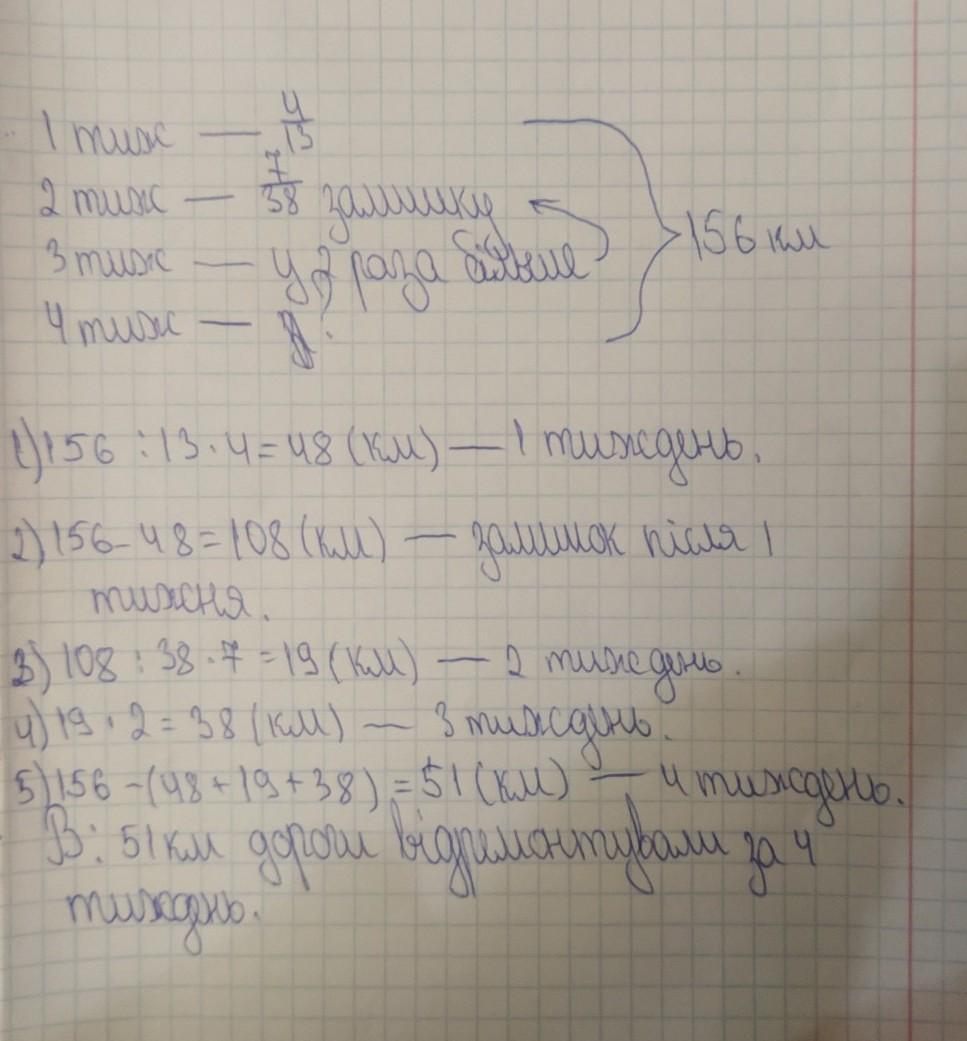 1 тиж — 4/13
2 тиж — 7/38 залишку
3 тиж — у 2 раза більше
4 тиж — ?
156 км
1) 156 : 13 · 4 = 48 (км) — 1 тиждень.
2) 156 - 48 = 108 (км) — залишок після 1
тижня.
3) 108 : 38 · 7 = 19 (км) — 2 тиждень.
4) 19 · 2 = 38 (км) — 3 тиждень.
5) 156 - (48 + 19 + 38) = 51 (км) — 4 тиждень.
В: 51 км дороги відремонтували за 4
тиждень.